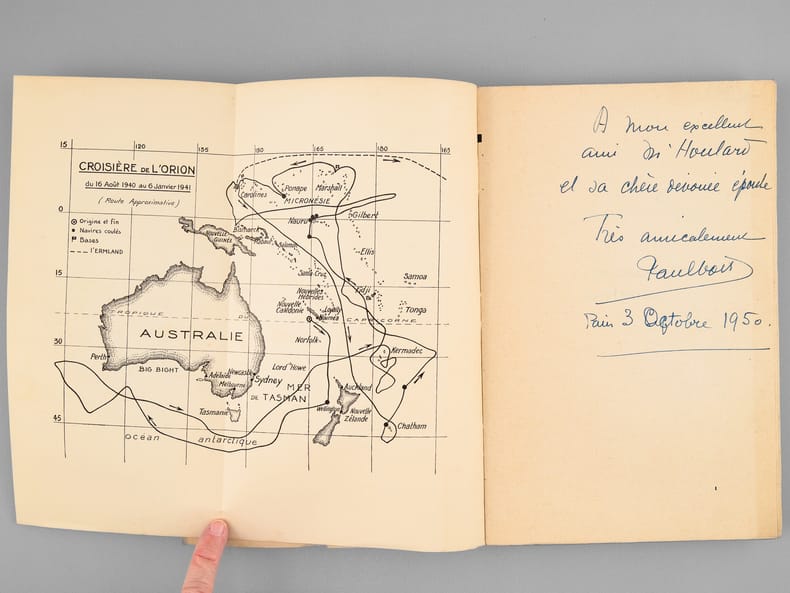 15
120
135
150
165
180
165
CROISIÈRE DE L'ORION
du 16 Août 1940 au 6 Janvier 1941
( Route Approximative )
0
Origine et fin
Navires coulés
Bases
l'ERMLAND
Carolines
Ponape
Marshall
MICRONÉSIE
Nauru
Gilbert
NOUVELLE GUINÉE
Bismarck
Salomon
Ellis
15
Santa Cruz
Samoa
Nouvelles Hébrides
Fidji
Nouvelle Calédonie
Loyalty
Nouméa
Tonga
TROPIQUE DU CAPRICORNE
AUSTRALIE
30
Norfolk
Kermadec
Perth
BIG BIGHT
Lord Howe
Adelaïde
Newcastle
Sydney
Melbourne
MER DE TASMAN
Auckland
Tasmanie
Wellington
Nouvelle Zélande
45
Chatham
océan antarctique
A mon excellent
ami
et sa chère dévouée épouse
Très amicalement
Paris 3 Octobre 1950.
1